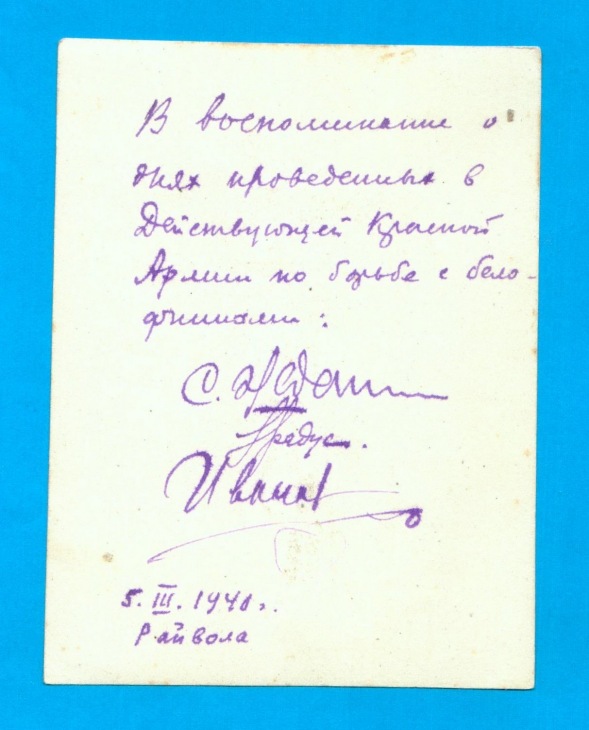 В воспоминание о
днях проведенных в
Действующей Красной
Армии по борьбе с бело-
финнами:
С.
Градус.
Иванов
5. III. 1940 г.
Райвола